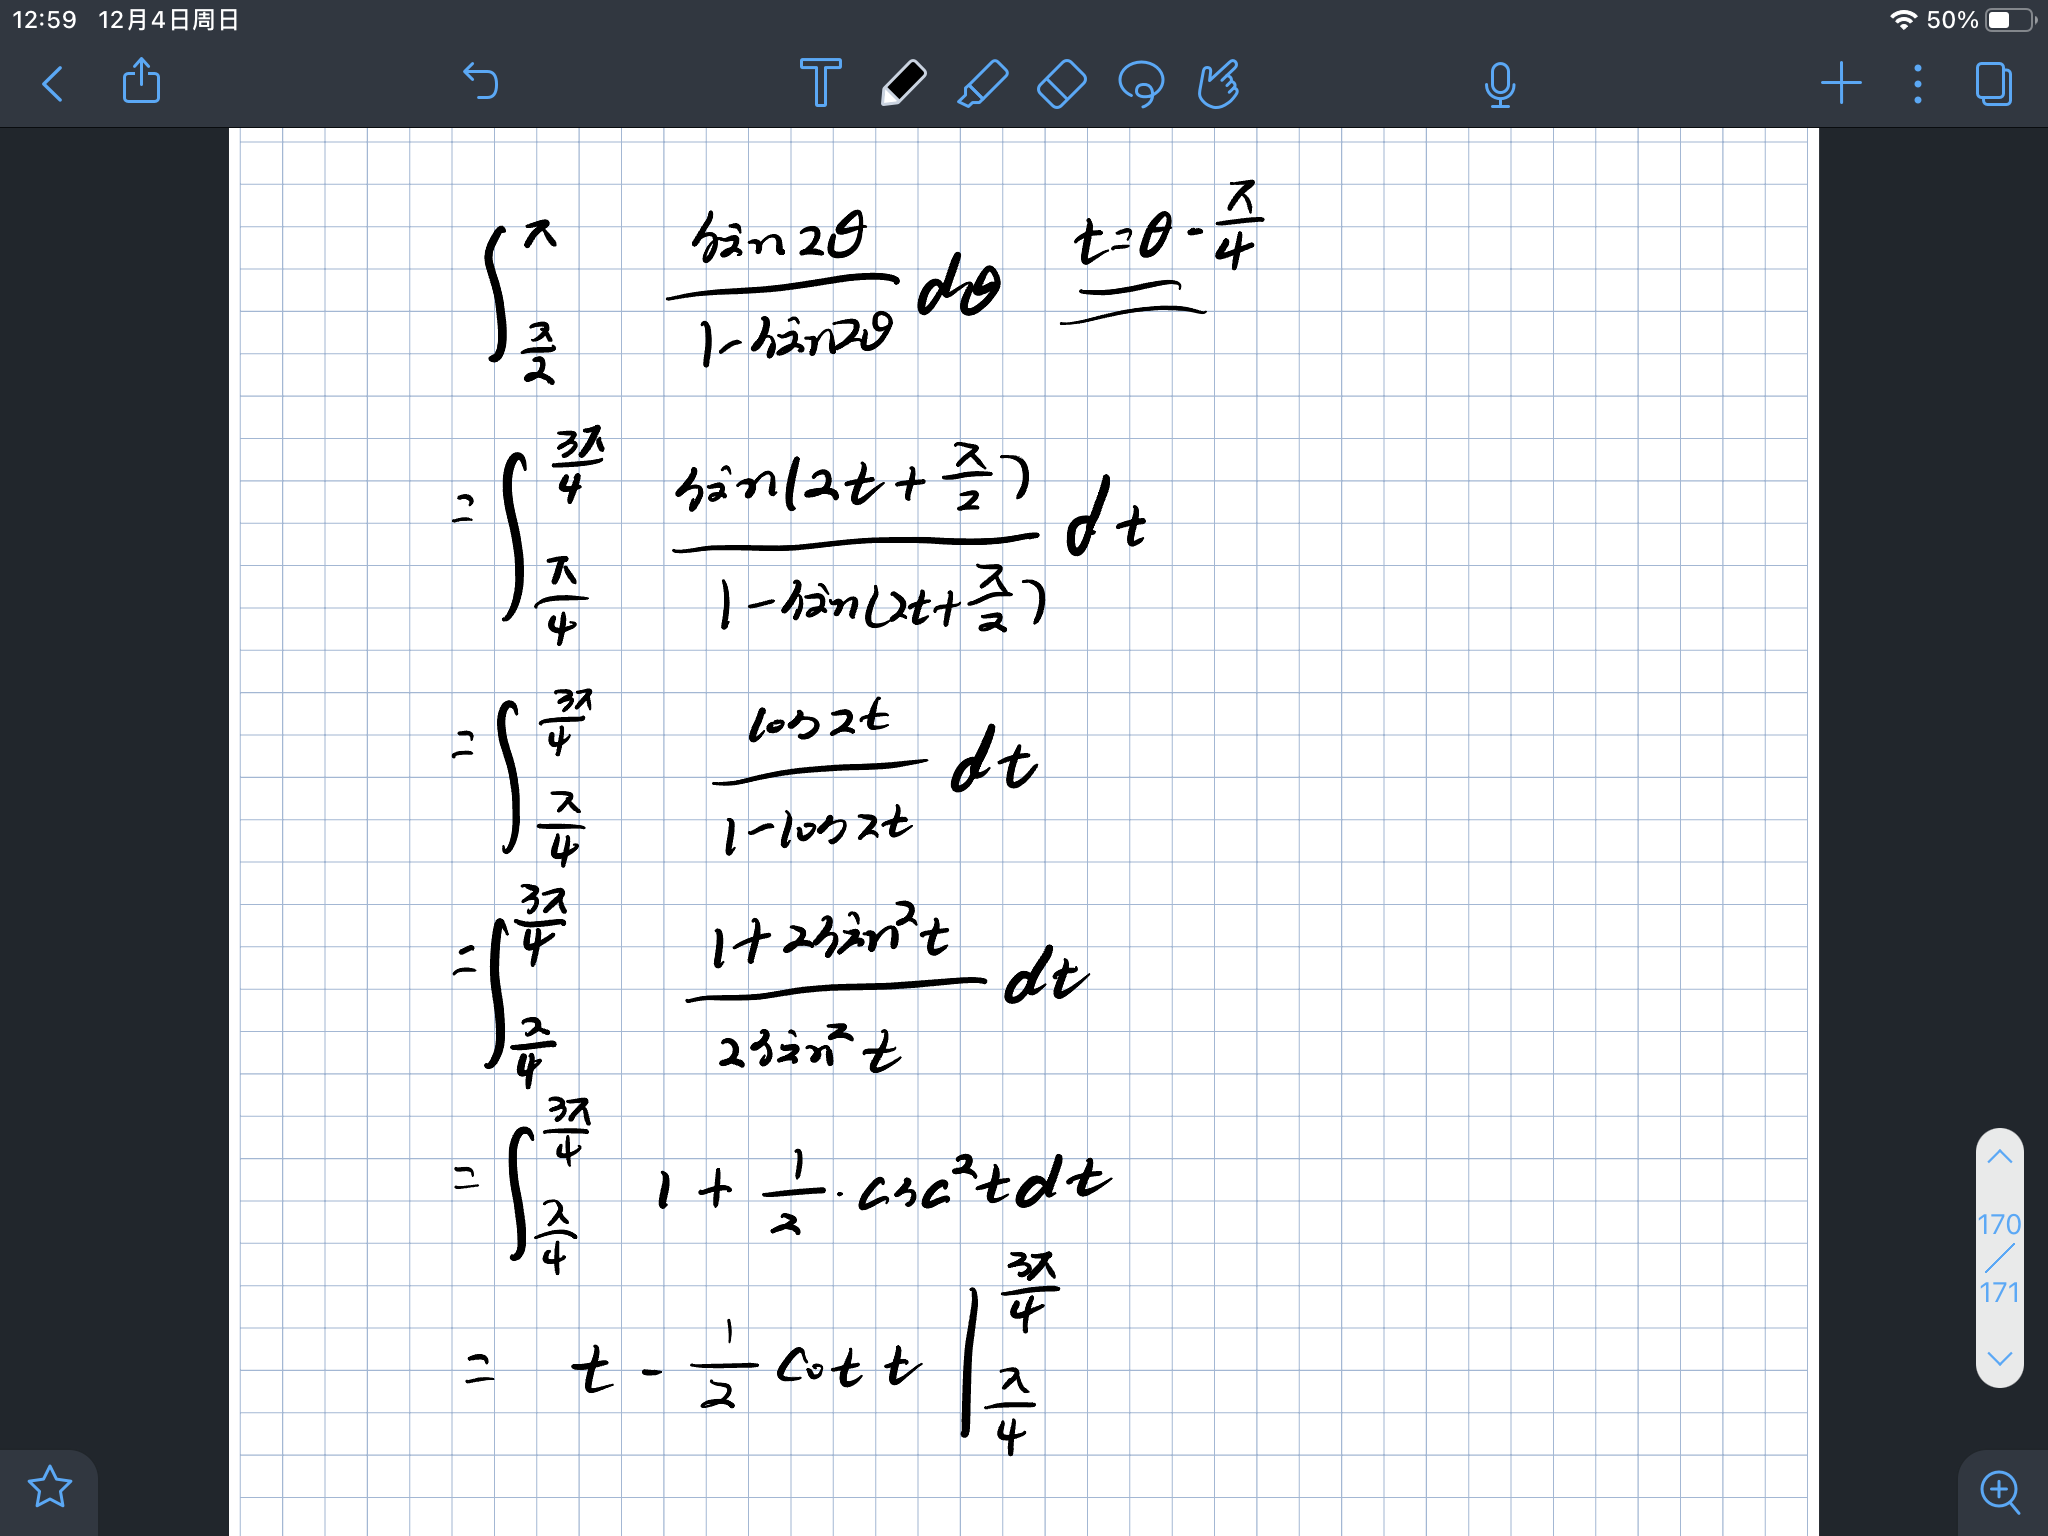 12:59 12月4日周日 50%
∫_{π/2}^{π} sin2θ/(1-sin2θ) dθ t=θ-π/4
= ∫_{π/4}^{3π/4} sin(2t+π/2)/(1-sin(2t+π/2)) dt
= ∫_{π/4}^{3π/4} cos2t/(1-cos2t) dt
= ∫_{π/4}^{3π/4} (1+2sin²t)/(2sin²t) dt
= ∫_{π/4}^{3π/4} 1+1/2·csc²t dt
= t-1/2 cot t |_{π/4}^{3π/4}
170/171